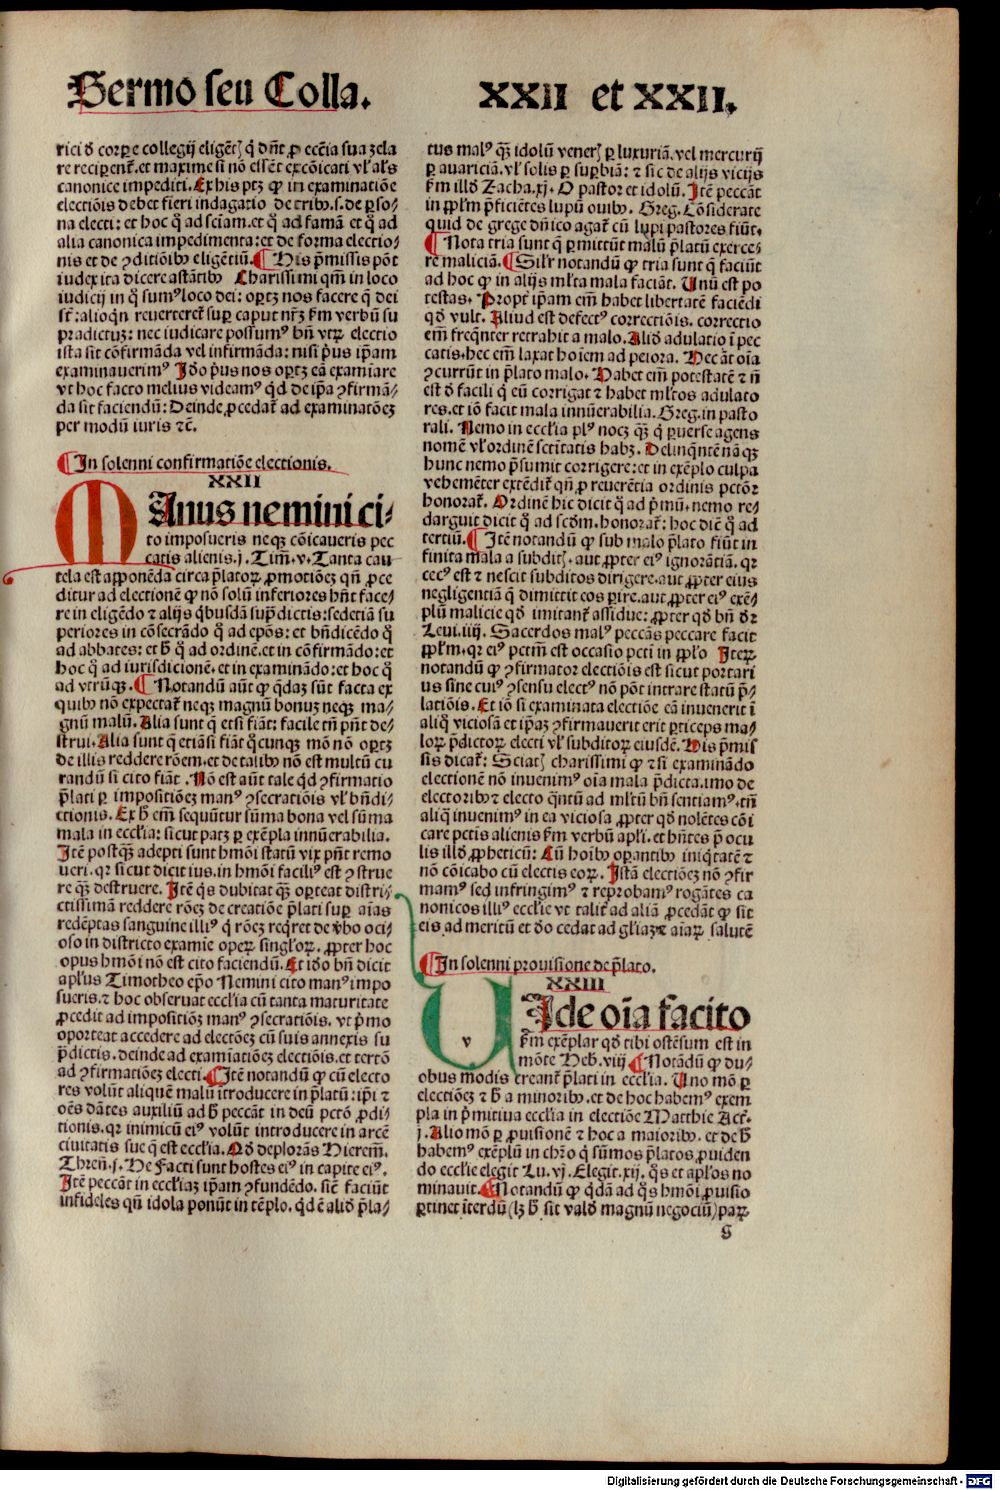 Sermo seu Colla. XXII et XXII.
rici ꝺ corpore collegij eligētꝫ q̄ dn̄t ꝓ eccīa sua zela
re reciperent. et maxime si nō essēt excōicati vl' al's
canonice impediti. Ex his ptꝫ ꝙ in examinatiōe
electiōis debet fieri indagatio de tribꝰ.s. de ꝑso/
na electi: et hoc q̄ ad sciam. et q̄ ad famā et q̄ ad
alia canonica impedimenta: et de forma electio/
nis et de ꝯditiōibꝰ eligētiū. ¶ His p̄missis pōt
iudex ita dicere astātibꝰ Charissimi qm̄ in loco
iudicij in q̄ sumꝰ loco dei: oportꝫ nos facere q̄ dei
st̄: alioqn̄ reverteret̄ suꝑ caput nr̄ꝫ ẜm verbū su
pradictuꝫ: nec iudicare possumꝰ bn̄ vtꝝ electio
ista sit cōfirmāda vel infirmāda: nisi pͥus ipsam
examinauerimꝰ Jdo pͥus nos oportꝫ eā examiare
vt hoc facto melius videamꝰ qͥd de ip̄a ꝯfirmā/
da sit faciendū: Deinde ꝓcedat̄ ad examinatōeꝫ
per modū iuris ⁊c̄.
¶ Jn solenni confirmatiōe electionis.
XXII
MAnus nemini ci/
to imposueris neqꝫ cōicaueris pec
catis alienis.j. Timͭ. v. Tanta cau
tela est apponēda circa p̄latoꝝ ꝓmotiōeꝫ qn̄ ꝓce
ditur ad electionē ꝙ nō solū inferiores hn̄t face/
re in eligēdo ⁊ alijs qͥbusdā supͣdictis: sed etiā su
periores in cōsecrādo q̄ ad epōs: et bn̄dicēdo q̄
ad abbates: et ħ q̄ ad ordinē. et in cōfirmādo: et
hoc q̄ ad iurisdicionē. et in examināđo: et hoc q̄
ad vtrūqꝫ. ¶ Notandū aūt ꝙ qͣdaꝫ sūt facta ex
quibꝰ nō expectat̄ neqꝫ magnū bonuꝫ neqꝫ ma/
gnū malū. Alia sunt q̄ etsi fiāt: facile tn̄ pn̄t de/
strui. Alia sunt q̄ etiāsi fiāt qͥcunqꝫ mō nō oportꝫ
de illis reddere rōem. et de talibꝰ nō est multū cu
randū si cito fiāt. Nō est aūt tale qͥd ꝯfirmatio
p̄lati ꝑ impositiōeꝫ manꝰ ꝯsecratiōis vl' bn̄di/
ctionis. Ex ħ em̄ sequūtur sūma bona vel sūma
mala in eccl'ia: sicut patꝫ ꝑ exēpla innūerabilia.
Jtē postqꝫ adepti sunt hmōi statū vix pn̄t remo
ueri. qꝛ sicut dicit ius. in hmōi faciliꝰ est ꝯstrue
re qꝫ destruere. Jtē qͥs dubitat qꝫ oporteat distri/
ctissimā reddere rōeꝫ de creatiōe p̄lati suꝑ aīas
redēptas sanguine illiꝰ q̄ rōeꝫ reqͥret de v̄bo oci/
oso in districto examīe operꝝ singl'oꝝ. ꝓpter hoc
opus hmōi nō est cito faciendū. Et idō bn̄ dicit
apl'us Timotheo ep̄o Nemini cito manꝰ impo
sueris. ⁊ hoc obseruat eccl'ia cū tanta maturitate
ꝓcedit ad impositiōꝫ manꝰ ꝯsecratiōis. vt pͥmo
oporteat accedere ad electōeꝫ cū suis annexis su
pͣdictis. deinde ad examīatiōeꝫ electiōis. et tertō
ad ꝯfirmatiōeꝫ electi. ¶ Jtē notandū ꝙ cū electo
res volūt aliquē malū ītroducere in p̄latū: ip̄i ⁊
oēs dātes auxiliū ad ħ peccāt in deū pctō ꝓdi/
tionis. qꝛ inimicū eiꝰ volūt introducere in arcē
ciuitatis sue q̄ est eccl'ia. Qđ deplorās Hieremͥ.
Thren.j. De Facti sunt hostes eiꝰ in capite eiꝰ.
Jtē peccāt in eccl'iaꝫ ipsam ꝯfundēdo. sic̄ faciūt
infideles qn̄ idola ponūt in tēplo. qͥd ē aliđ p̄la/
tus malꝰ qꝫ idolū venerꝭ ꝑ luxuriā. vel mercurij
ꝑ auariciā. vl' solis ꝑ suꝑbiā: ⁊ sic de alijs vicijs
ẜm illđ Zacha.xj. O pastor et idolū. Jtē peccāt
in ppl'm p̄ficiētes lupū ouibꝰ. Greg. Cōsiderate
quid de grege dn̄ico agat̄ cū lupi pastores fiūt.
¶ Nota tria sunt q̄ ꝑmittūt malū p̄latū exerce/
re maliciā. ¶ Silr' notandū ꝙ tria sunt q̄ faciūt
ad hoc ꝙ in alijs ml'ta mala faciāt. Unū est po
testas. Propt' ip̄am em̄ habet libertatē faciēdi
qđ vult. Aliud est defectꝰ correctiōis. correctio
em̄ freqn̄ter retrahit a malo. Aliđ adulatio ī pec
catis. hec em̄ laxat hoīem ad peiora. Hec āt oīa
ꝯcurrūt in p̄lato malo. Habet em̄ potestatē ⁊ n̄
est đ facili q̄ eū corrigat ⁊ habet ml'tos adulato
res. et iō facit mala innūerabilia. Greg. in pasto
rali. Nemo in eccl'ia plꝰ nocꝫ qꝫ q̄ ꝑuerse agens
nomē vl' ordinē sctītatis habꝫ. Delinqn̄tē nāqꝫ
hunc nemo p̄sumit corrigere: et in exēplo culpa
vehemēter extēdit̄ qn̄ ꝓ reuerētia ordinis pctōr
honorat̄. Ordinē hic dicit q̄ ad pͥmū. nemo re/
darguit dicit q̄ ad scđm. honorat̄: hoc dic̄ q̄ ad
tertiū. ¶ Jtē notandū ꝙ sub malo p̄lato fiūt in
finita mala a subditꝭ. aut ꝓpter eiꝰ ignorātiā. qꝛ
cecꝰ est ⁊ nescit subditos dirigere. aut ꝓpter eius
negligentiā q̄ dimittit eos ꝑire. aut ꝓpter eiꝰ exē/
plū malicie qđ imitant̄ assidue: ꝓpter qđ bn̄ đr
Leui.iiij. Sacerdos malꝰ peccās peccare facit
ppl'm. qꝛ eiꝰ pctm̄ est occasio pcti in ppl'o Jteꝝ
notandū ꝙ ꝯfirmator electiōis est sicut portari
us sine cuiꝰ ꝯsensu electꝰ nō pōt intrare statū p̄/
latiōis. Et iō si examinata electiōe eā inuenerit ī
aliqͦ viciosā et ip̄aꝫ ꝯfirmauerit erit ꝑticeps ma/
loꝝ p̄dictoꝝ electi vl' subditoꝝ eiusdē. His p̄mis
sis dicat̄: Sciatꝭ charissimi ꝙ ⁊ si examinādo
electionē non inuenimꝰ oīa mala p̄dicta. imo de
electoribꝰ ⁊ electo qͣntū ad ml'tū bn̄ sentiamꝰ. tn̄
aliqͥ inuenimꝰ in ea viciosa ꝓpter qđ nolētes cōi
care pctis alienis ẜm verbū apl'i. et hn̄tes p̄ ocu
lis illđ ꝓpheticū: Cū hoībꝰ operantibꝰ iniqͥtatē ⁊
nō cōicabo cū electis eoꝝ. Jstā electiōeꝫ nō ꝯfir
mamꝰ sed infringimꝰ ⁊ reprobamꝰ rogātes ca
nonicos illiꝰ eccl'ie vt talit̄ ad aliā ꝓcedāt ꝙ sit
eis ad meritū et đo cedat ad gl'iaꝫ ⁊ aīaꝝ salutē
¶ Jn solenni prouisione de p̄lato.
XXIII
v
Jde oīa facito
ẜm exēplar qđ tibi ostēsum est in
mōte Heb. viij ¶ Notādū ꝙ du/
obus modis creant̄ p̄lati in eccl'ia. Uno mō ꝑ
electiōeꝫ ⁊ ħ a minoribꝰ. et de hoc habemꝰ exem
pla in pͥmitiua eccl'ia in electiōe Matthie Act̄.
j. Alio mō ꝑ ꝓuisionē ⁊ hoc a maioribꝰ. et de ħ
habemꝰ exēplū in chr̄o q̄ sūmos p̄latos ꝓuiden
do eccl'ie elegit Lu. vj. Elegit. xij. qͦs et apl'os no
minauit. ¶ Notandū ꝙ qͣdā ad qͦs hmōi ꝓuisio
ꝑtinet īterdū (lꝫ ħ sit valđ magnū negociū) paꝝ
g
Digitalisierung gefördert durch die Deutsche Forschungsgemeinschaft - DFG